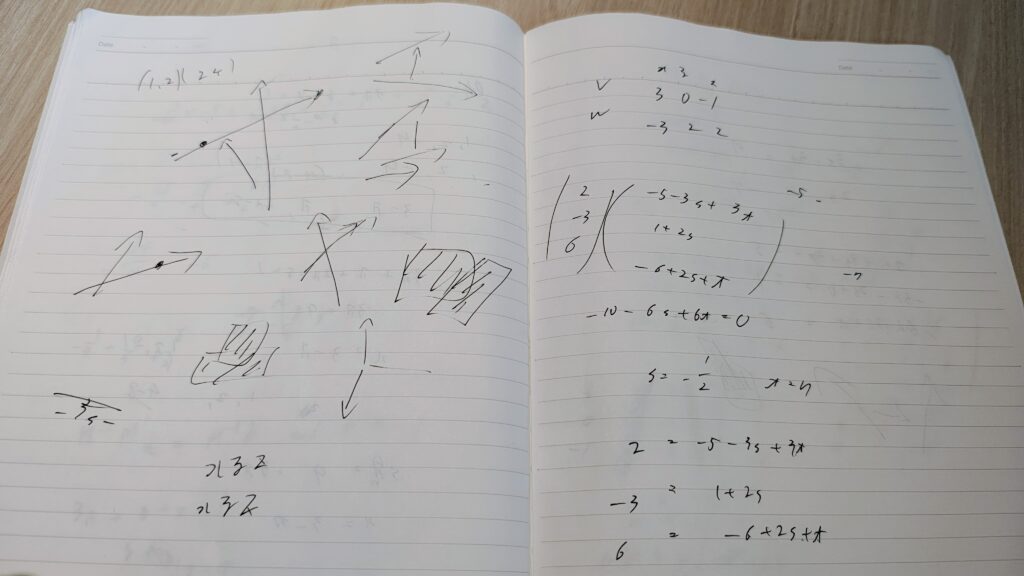 Date
(1,2)(2 4)
x y z
x y z
Date
x y z
v 3 0 -1
w -3 2 2
2
-3
6
-5-3s+3t
1+2s
-6+2s+t
-5 -
-10 - 6s+6t=0
s= -1/2
2 = -5-3s+3t
-3 = 1+2s
6 = -6+2s+t